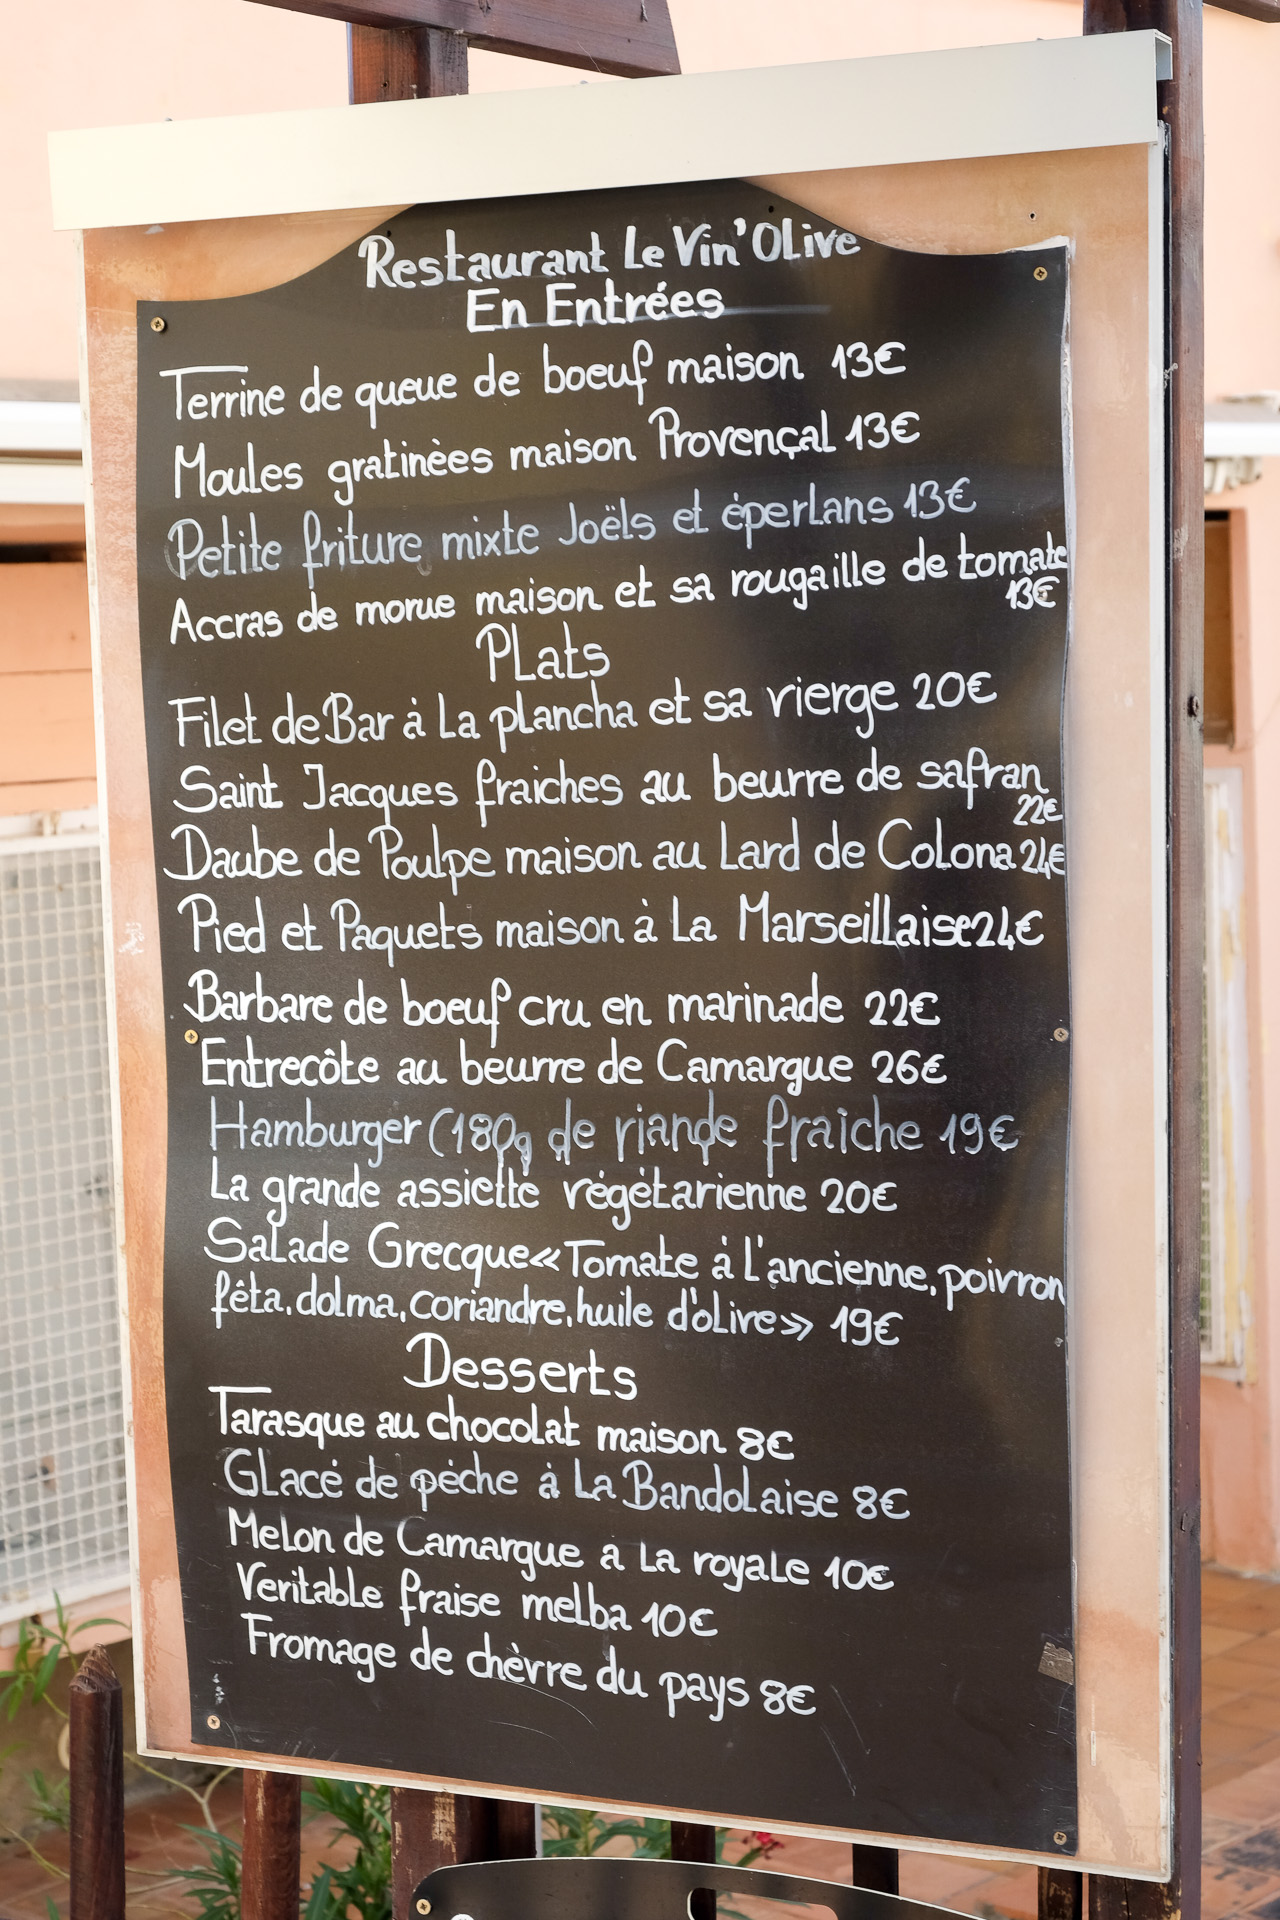 Restaurant Le Vin'Olive
En Entrées
Terrine de queue de boeuf maison 13€
Moules gratinèes maison Provençal 13€
Petite friture mixte Joëls et éperlans 13€
Accras de morue maison et sa rougaille de tomate
13€
Plats
Filet de Bar à La plancha et sa vierge 20€
Saint Jacques fraiches au beurre de safran
22€
Daube de Poulpe maison au Lard de Colona 24€
Pied et Paquets maison à La Marseillaise 24€
Barbare de boeuf cru en marinade 22€
Entrecôte au beurre de Camargue 26€
Hamburger (180g de viande fraîche 19€
La grande assiette végétarienne 20€
Salade Grecque «Tomate à l'ancienne, poivron
fêta, dolma, coriandre, huile d'olive» 19€
Desserts
Tarasque au chocolat maison 8€
Glacé de pêche à La Bandolaise 8€
Melon de Camargue a la royale 10€
Veritable fraise melba 10€
Fromage de chèvre du pays 8€